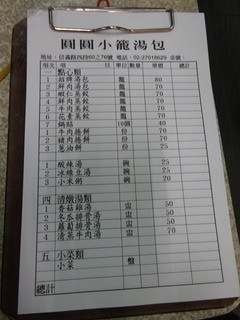 圓圓小籠湯包
地址：信義路四段60之76號 電話：02-27018629 桌號：
項次 項目 單位 數量 單價 總計
一 點心類
1 招牌湯包 籠 80
2 鮮肉湯包 籠 70
3 蝦仁蒸餃 籠 70
4 鮮肉蒸餃 籠 70
5 牛肉蒸餃 籠 70
6 花素蒸餃 籠 70
7 鍋貼 10個 40
1 牛肉捲餅 份 70
2 豬肉捲餅 份 70
3 蔥油餅 份 25
1 酸辣湯 碗 25
2 冰綠豆湯 碗 25
3 小米粥 碗 20
四 清燉湯類
1 香菇雞湯 盅 50
2 冬瓜排骨湯 盅 50
3 蘿蔔排骨湯 盅 50
4 清蒸牛肉湯 盅 70
五 小菜類
小菜 盤
總計